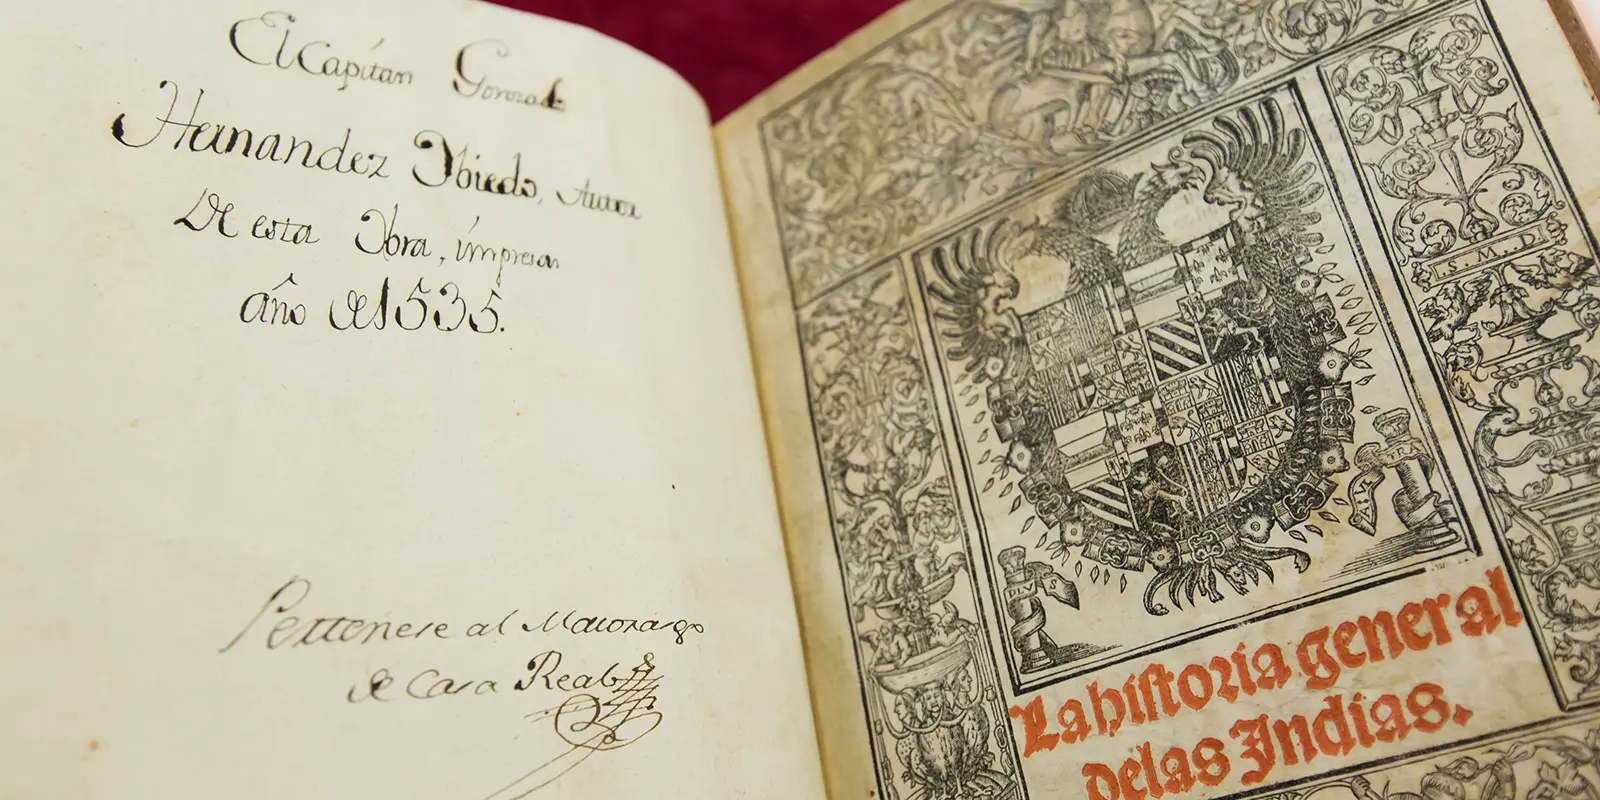 El Capitan Gonzalo
Hernandez Obiedo, Autor
De esta Obra, impresa
año de 1535.
Pertenese al Maiorasgo
de Casa Real
S. M. D.
PLVS
VLTRA
La historia general
delas Indias.